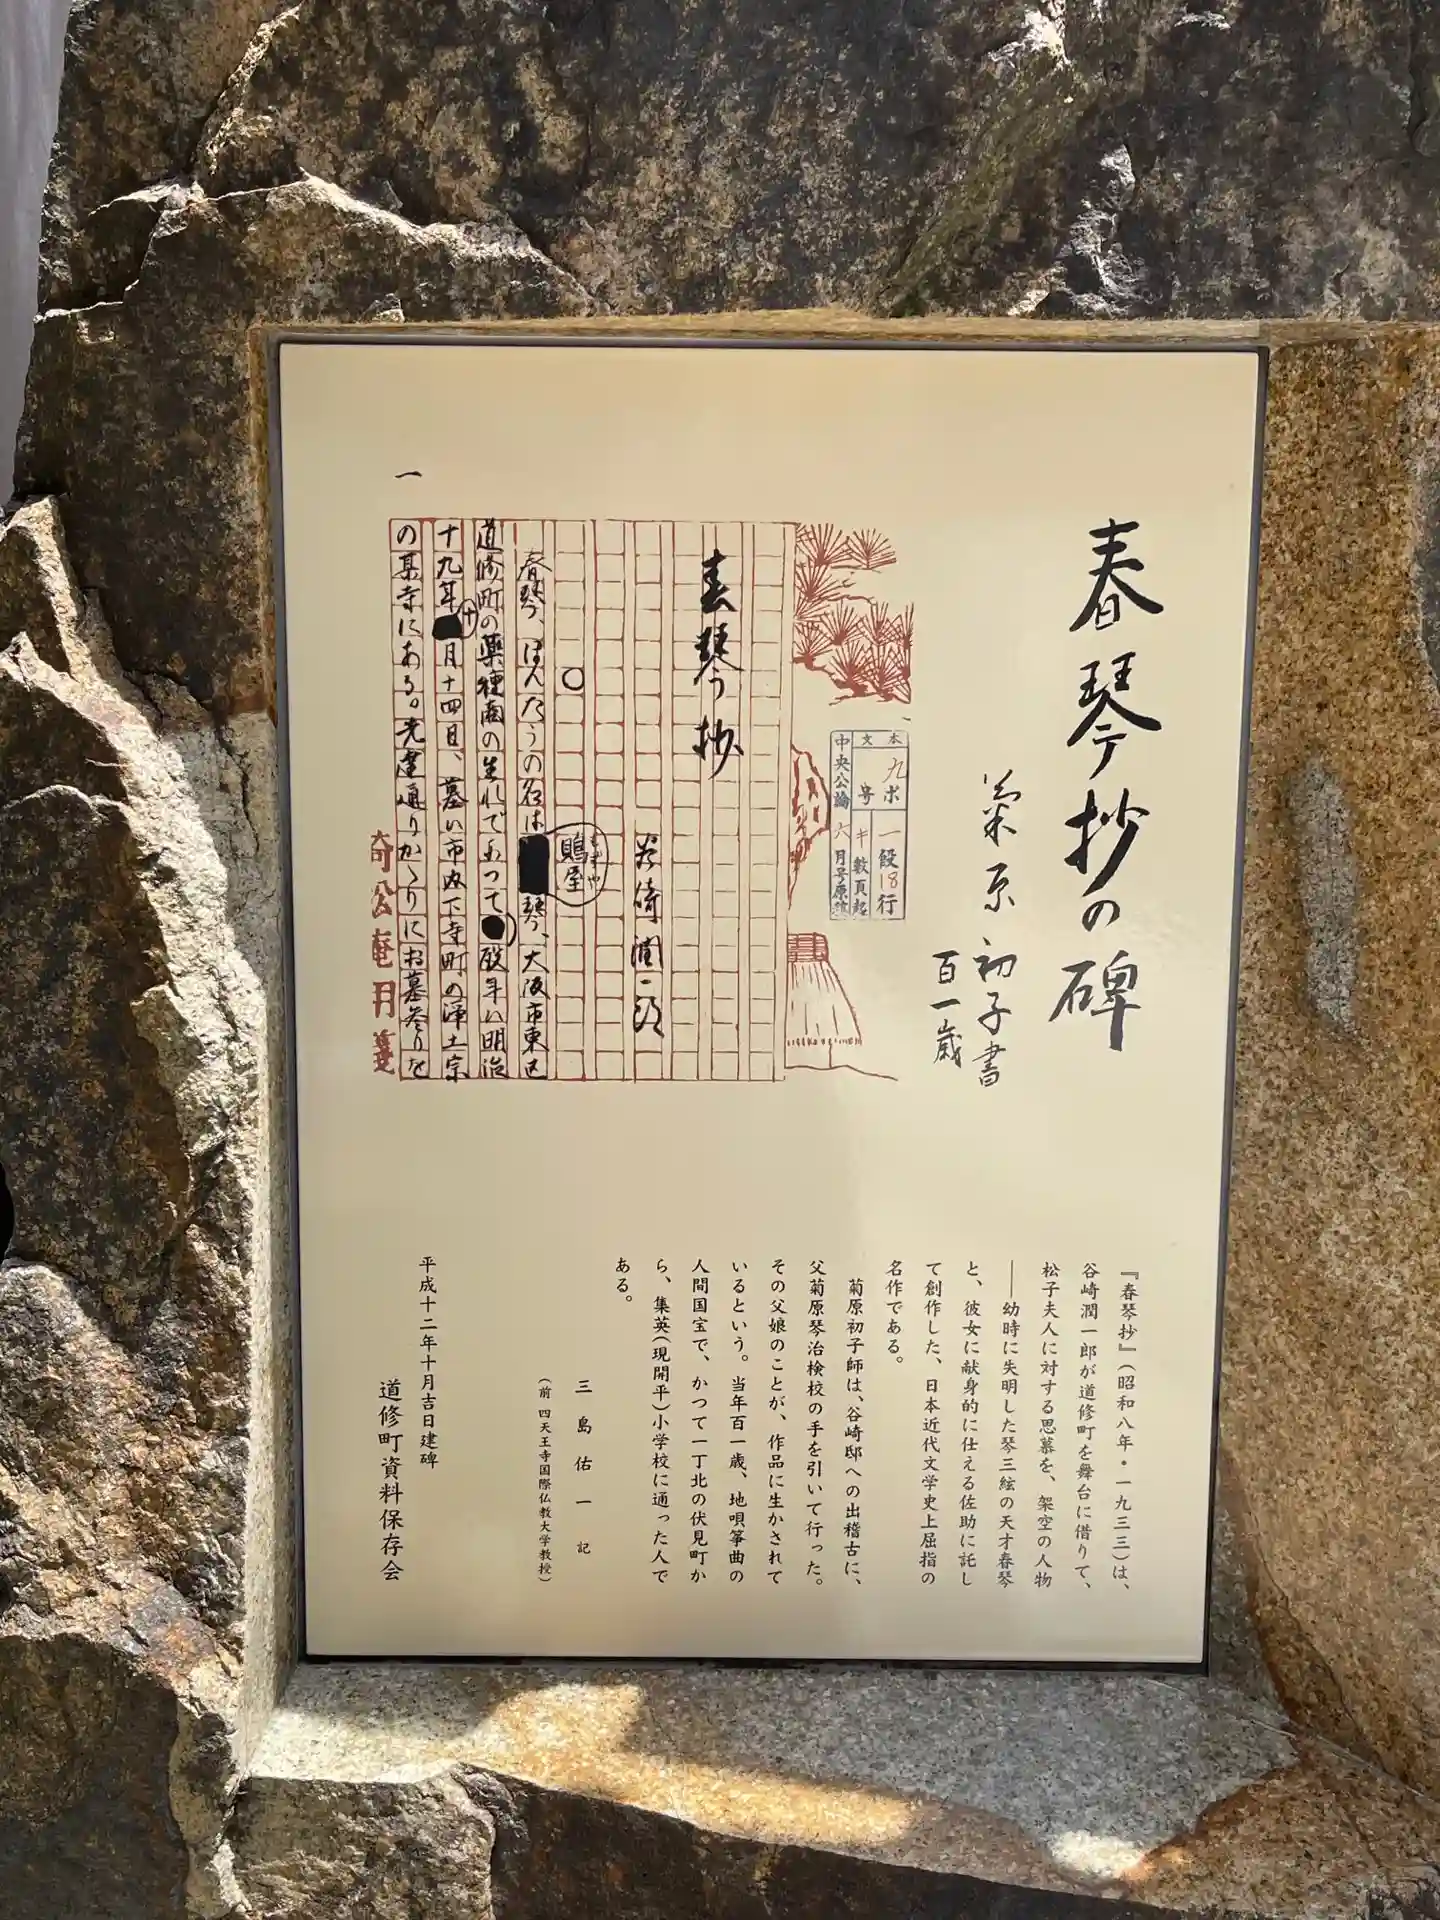 春琴抄の碑
菊原初子書
百一歳
本文
九ポ
一段18行
号
キ数頁起
中央公論
六月号原稿
春琴抄
谷崎潤一郎
○
鵙屋
もずや
春琴、ほんたうの名は
琴、大阪市東区
道修町の薬種商の生れであつて
歿年は明治
十九年
十
月十四日、墓は市内下寺町の浄土宗
の某寺にある。先達通りかゝりにお墓参りを
一
奇松庵用箋
『春琴抄』(昭和八年・一九三三)は、
谷崎潤一郎が道修町を舞台に借りて、
松子夫人に対する思慕を、架空の人物
――幼時に失明した琴三絃の天才春琴
と、彼女に献身的に仕える佐助に託し
て創作した、日本近代文学史上屈指の
名作である。
菊原初子師は、谷崎邸への出稽古に、
父菊原琴治検校の手を引いて行った。
その父娘のことが、作品に生かされて
いるという。当年百一歳、地唄箏曲の
人間国宝で、かつて一丁北の伏見町か
ら、集英(現開平)小学校に通った人で
ある。
三島佑一 記
(前 四天王寺国際仏教大学教授)
平成十二年十月吉日建碑
道修町資料保存会